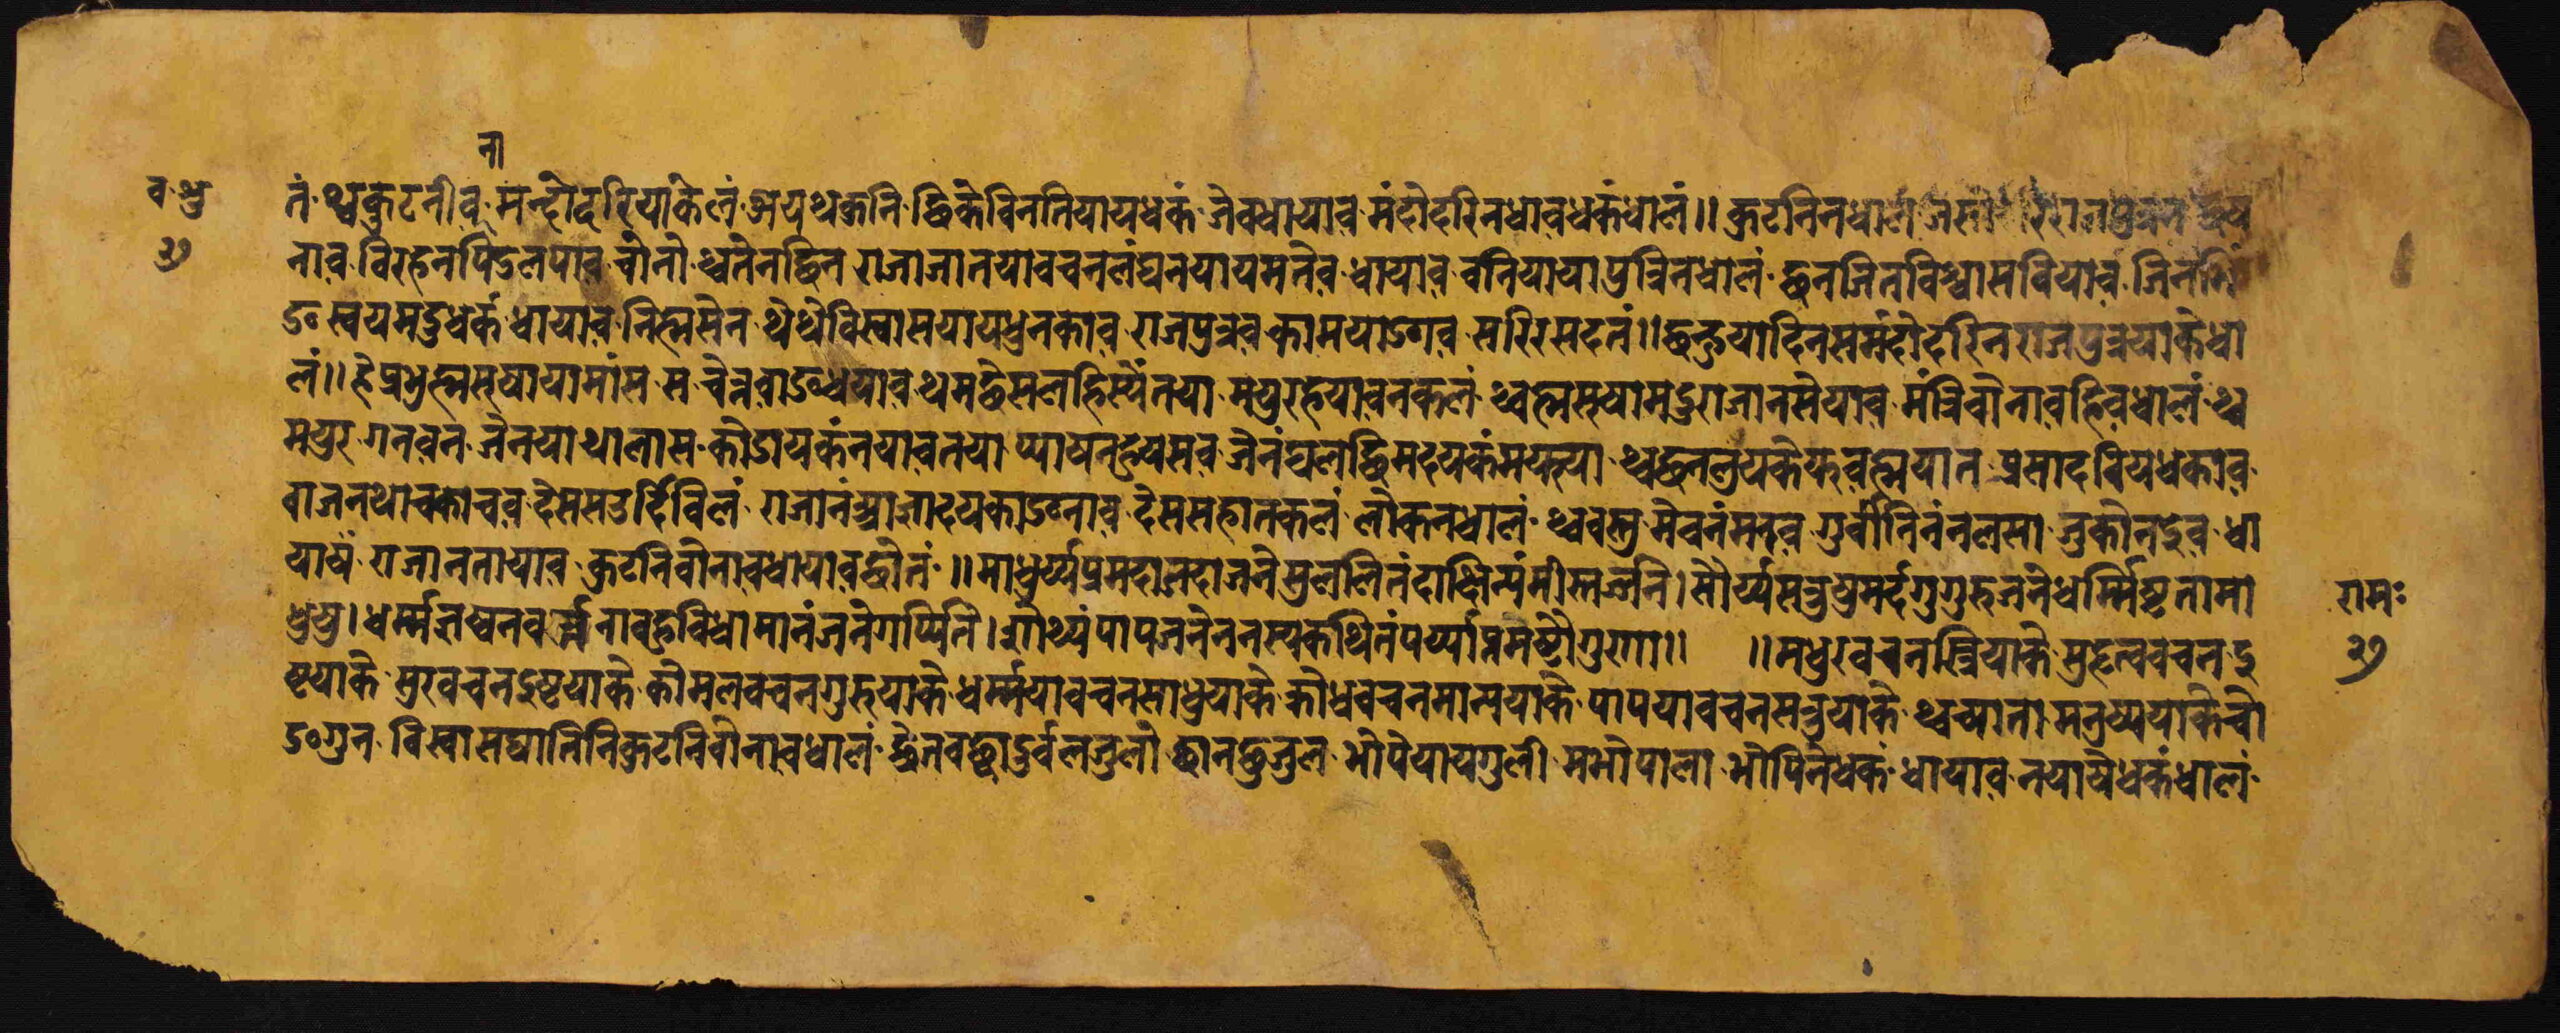 ना
व धु तं थ्व कुटनीव मन्दोदरियाकेलं अयथक्रनि छिके विनतियायधकं जेवधायाव मंदोदरिनधावधकंधालं॥ कुटनिनधालं
२७ नाव विरहनपिडलपाव चोनो थ्वतेनछिन राजाजातयावचनलंघनयायमतेव धायाव वनियायापुत्रिनधालं छनजितविश्वासवियाव जिनं
ङ स्वयमदुधकं धायाव निह्मसेन थेथेविस्वासयायधुनकाव राजपुत्रव कामयाङाव सरिरसदतं॥ छन्हुयादिनसमंदोदरिन राजपुत्रयाकेधा
लं॥ हेप्रभुह्मसखायामांस स चेत्रवाङाधयाव थमछेसलहिस्येंतया मयुरहयावनकलं थ्वह्मसखामदुराजानसेयाव मंत्रिवोनावहिवधालं थ्व
मयुर गनवन जेनयाथालास कोङायकंनयावतया प्याषनहुयसव जेनंघलछिमदयकंमफया थ्वछनलुयकेफुवह्मयात प्रसादवियधकाव
वाजनथाचकाचव देससउर्दिविलं राजानंआज्ञादयकाङनाव देससहातकलं लोकनधालं थ्ववस्तु मेवनंमतव गुर्वीतिनंनलसा नुकोनदुव धा
यावं राजानतायाव कुटनिवोनावधायावछोतं॥ माधुर्य्यप्रमदाजनेसुललितंदाक्षिन्यमीसज्जने। सौर्य्यसत्रुषुमर्दगुगुरुजनेधर्म्मिष्टतामा
धुषु। धर्म्मज्ञष्वनवर्त्तनावहुविधामानंजनेगप्पिते। शाथ्यंपापजनेनेनस्यकथितंपर्य्याप्तमष्टौगुणा॥ ॥मधुरवचनस्त्रियाके सुहृत्ववचनदु
ष्टयाके सुरवचनदुष्टयाके कोमलवचनगुरुयाके धर्म्मयावचनसाधुयाके क्रोधवचनमान्ययाके पापयावचनसत्रुयाके थ्वच्याता मनुष्ययाकेचो
ङगुन विस्वासघातिनिकुटनिवोनावधालं छेनवछादुर्वलजुलो छानछुजुल भोपेयायगुली मभोपाला भोपिनेधकं धायाव नयायेधकंधालं
रामः
२७